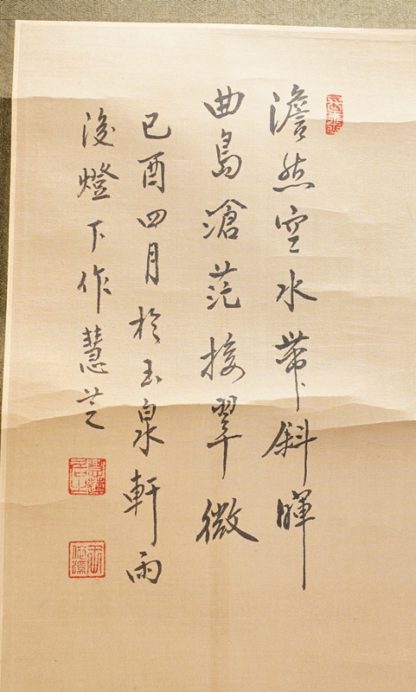 澹然空水帶斜暉
曲島滄茫接翠微
己酉四月於玉泉軒雨
後燈下作慧芝